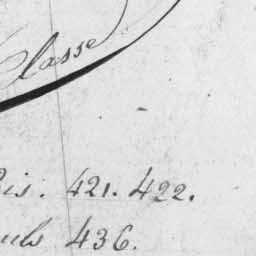 Classe
is. 421. 422.
uls 436.